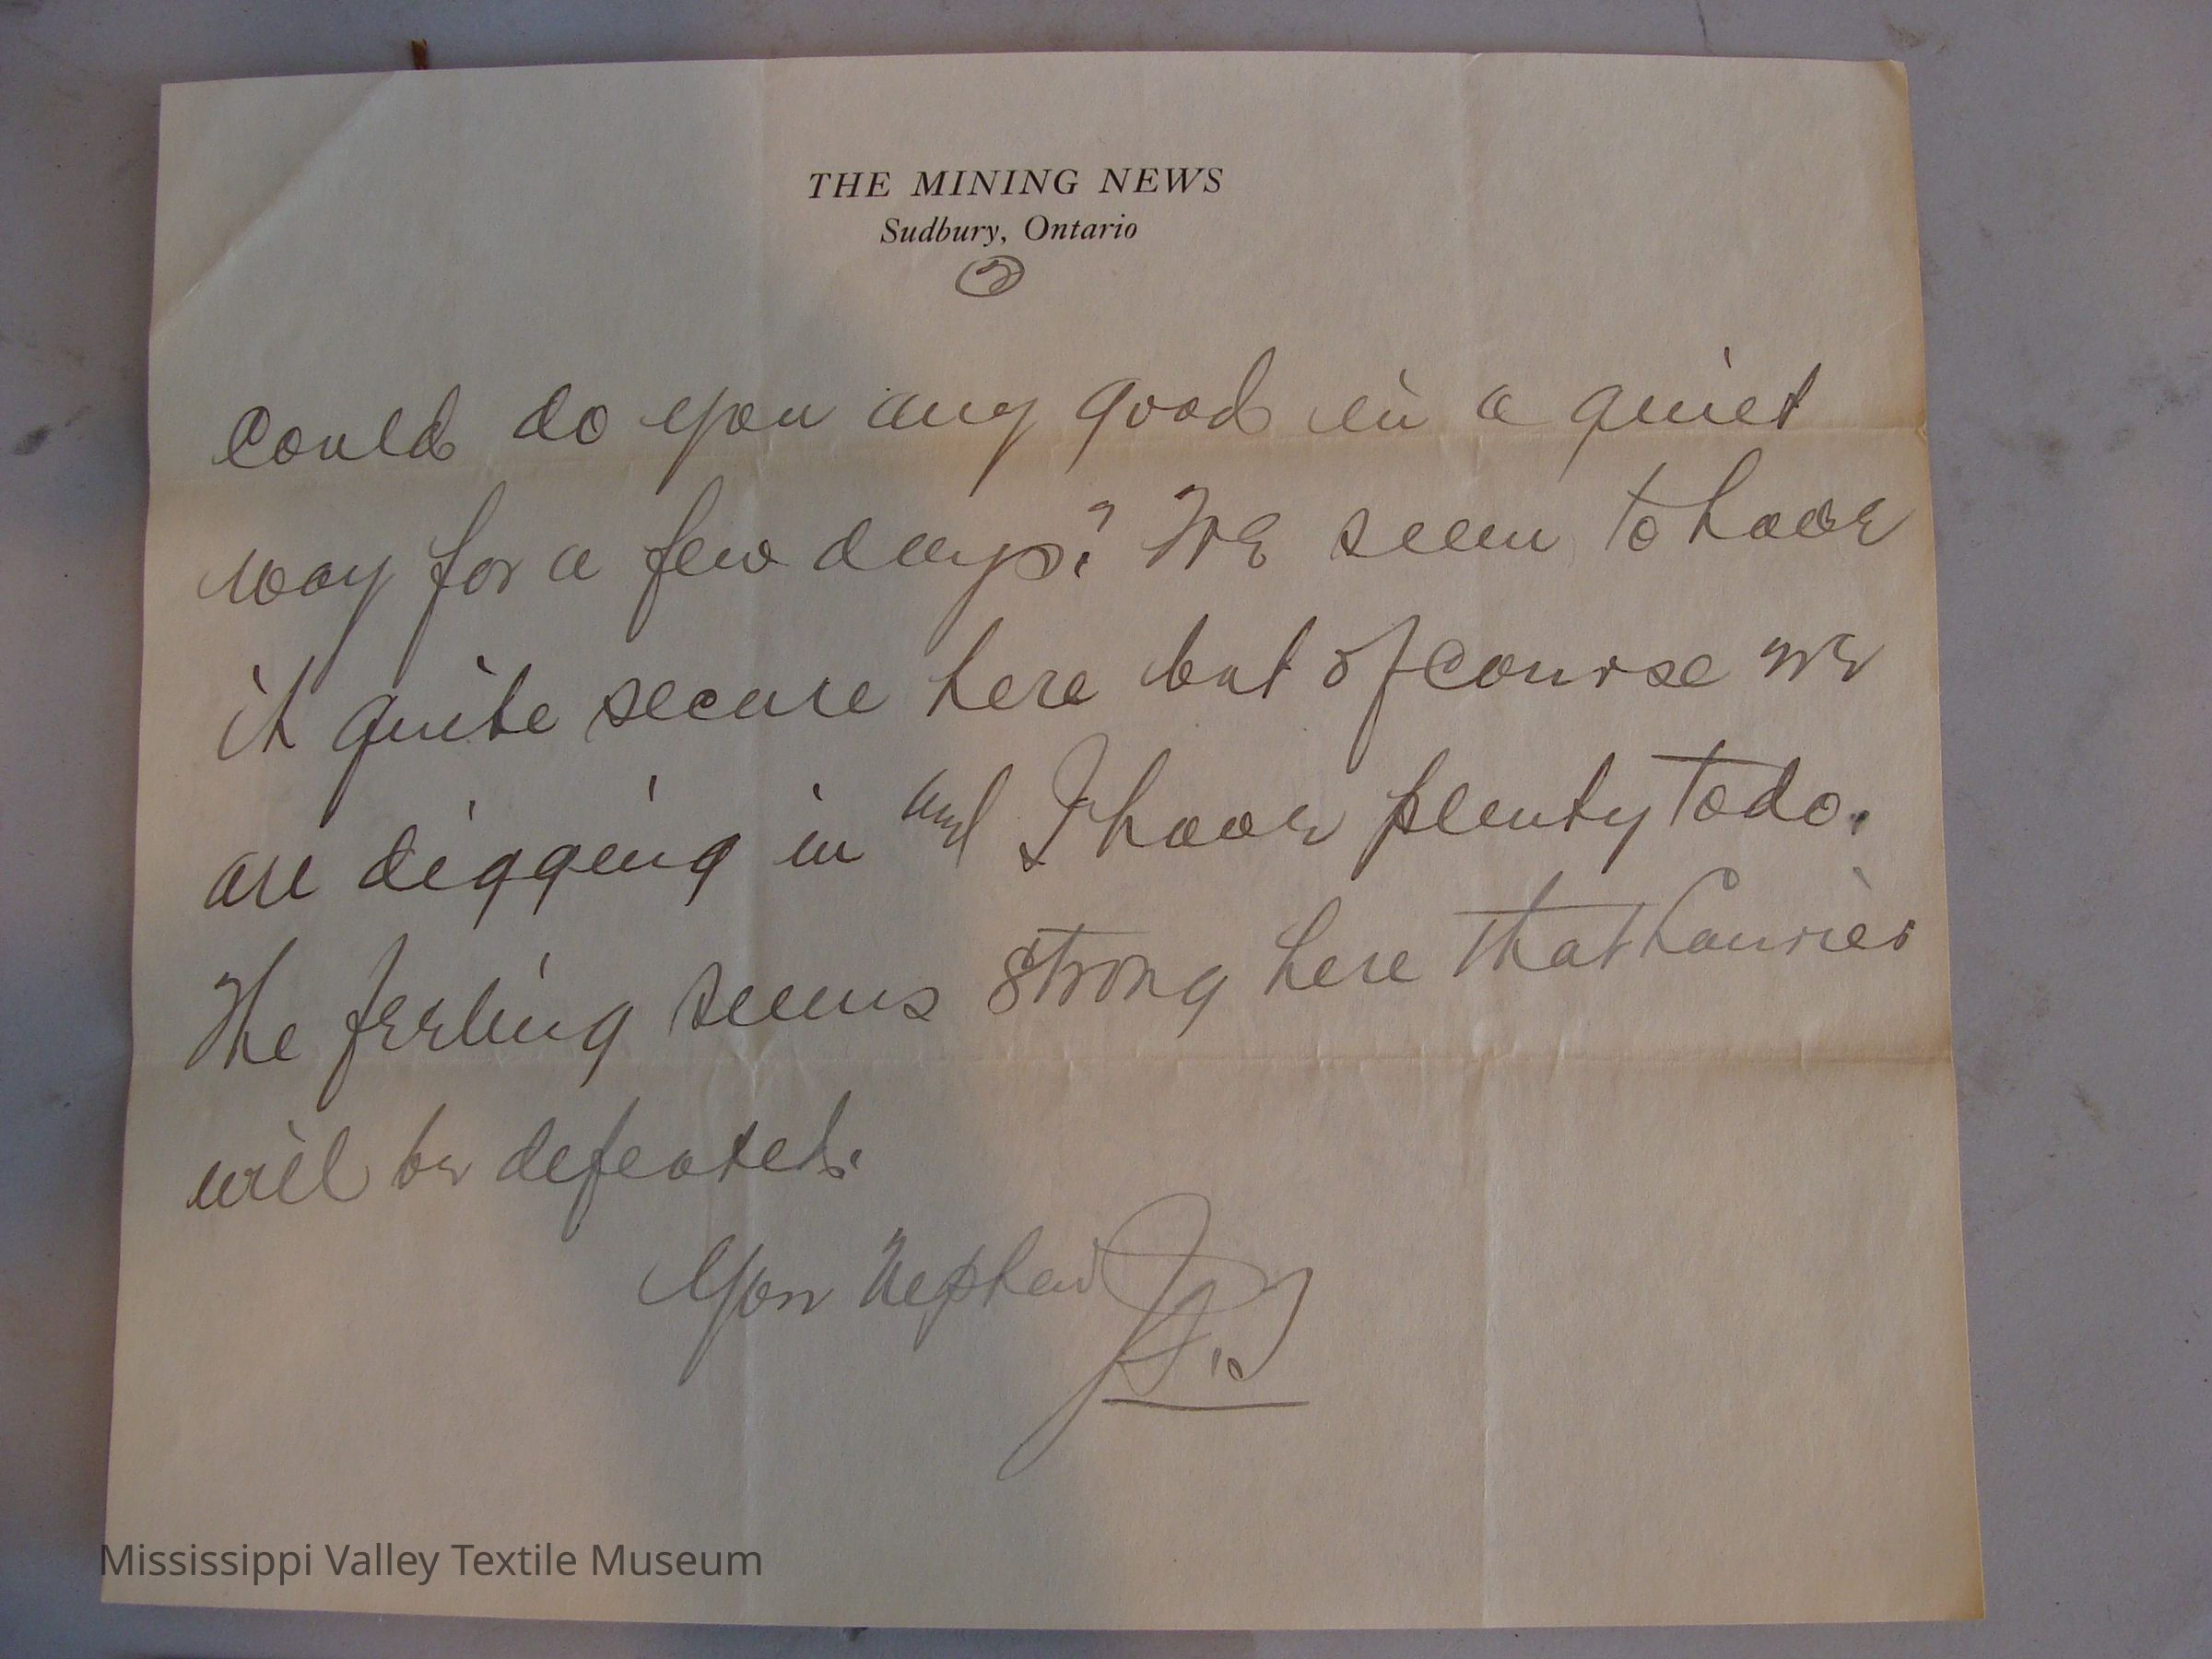 THE MINING NEWS
Sudbury, Ontario
2
Could do you any good in a quiet
way for a few days? We seem to have
it quite secure here but of course we
are digging in and I have plenty to do.
The feeling seems strong here that Laurier
will be defeated.
Your Nephew
Mississippi Valley Textile Museum